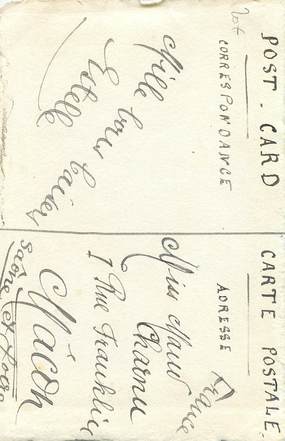 POST. CARD
CARTE POSTALE
CORRESPONDANCE
ADRESSE
Mille bons baisers
Estelle
France
Miss Maud
7 Rue Franklin
Mâcon
Saône et Loire